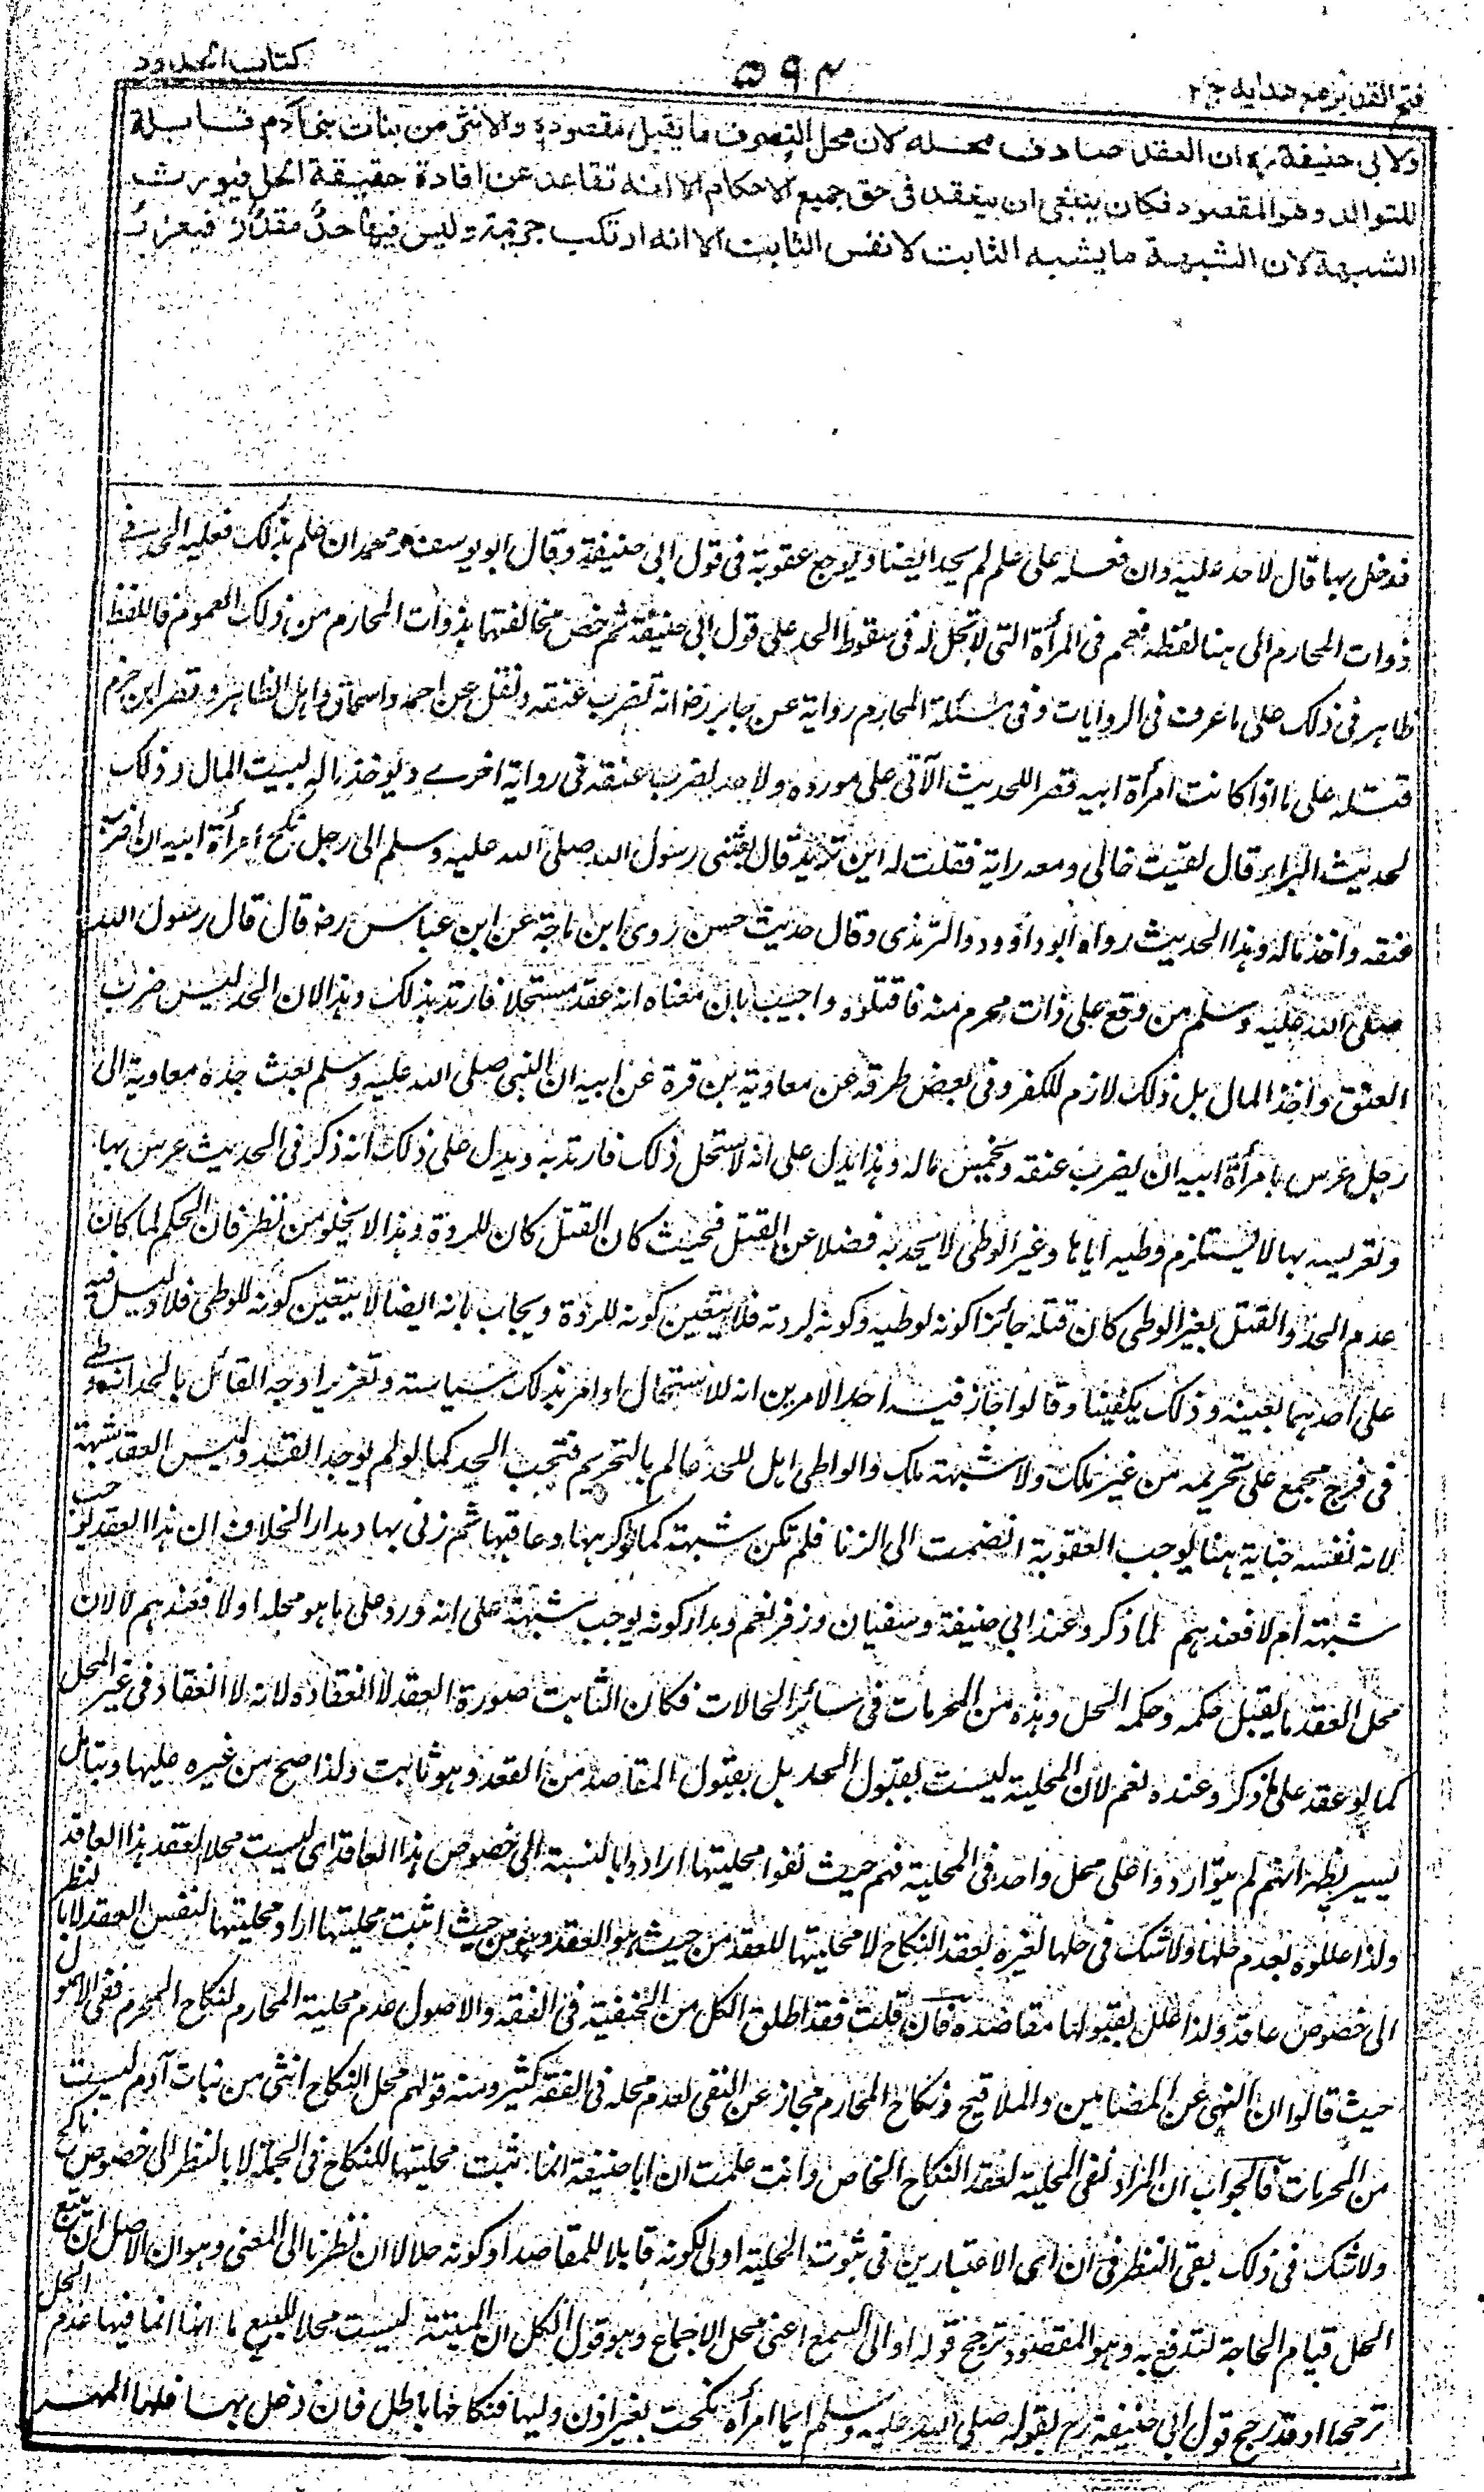 فتح القدير مع هدايه ج ٢
٥٩٢
كتاب الحدود
ولابى حنيفة ره ان العقد صادف محله لان محل التصرف ما يقبل مقصوده والانثى من بنات بنى آدم قابلة
للتوالد وهو المقصود فكان ينبغى ان ينعقد فى حق جميع الاحكام الا انه تقاعد عن افادة حقيقة الحل فيورث
الشبهة لان الشبهة ما يشبه الثابت لا نفس الثابت الا انه ارتكب جريمة وليس فيها حد مقدر فيعزر
فدخل بها قال لا حد عليه وان فعله على علم لم يحد ايضا ويوجع عقوبة فى قول ابى حنيفة وقال ابو يوسف ومحمد ان علم بذلك فعليه الحد فى
ذوات المحارم الى هنا لفظه فعمم فى المرأة التى لا تحل له فى سقوط الحد على قول ابى حنيفة ثم خص مخالفتهما بذوات المحارم من ذلك العموم فاللفظ
ظاهر فى ذلك على ما عرف فى الروايات وفى مسئلة المحارم رواية عن جابر رض انه تضرب عنقه ونقل عن احمد واسحاق واهل الظاهر وقصر ابن حزم
قتله على ما اذا كانت امرأة ابيه قصرا للحديث الآتى على مورده ولاحمد تضرب عنقه فى رواية اخرے ويوخذ ماله لبيت المال وذلك
لحديث البراء قال لقيت خالى ومعه راية فقلت له اين تريد قال بعثنى رسول الله صلى الله عليه وسلم الى رجل نكح امرأة ابيه ان اضرب
عنقه واخذ ماله وهذا الحديث رواه ابو داؤود والترمذى وقال حديث حسن وروى ابن ماجة عن ابن عباس رض قال قال رسول الله
صلى الله عليه وسلم من وقع على ذات محرم منه فاقتلوه واجيب بان معناه انه عقد مستحلا فارتد بذلك وهذا لان الحد ليس ضرب
العنق واخذ المال بل ذلك لازم للكفر وفى بعض طرقه عن معاوية بن قرة عن ابيه ان النبى صلى الله عليه وسلم بعث جده معاوية الى
رجل عرس بامرأة ابيه ان يضرب عنقه ويخمس ماله وهذا يدل على انه لاستحل ذلك فارتد به ويدل على ذلك انه ذكر فى الحديث عرس بها
وتعريسه بها لا يستلزم وطيه اياها وغير الوطى لا يحد به فضلا عن القتل فحيث كان القتل كان للردة وهذا لا يخلو من نظر فان الحكم لما كان
عدم الحد والقتل بغير الوطى كان قتله جائزا كونه لوطيه وكونه لردته فلا يتعين كونه للردة ويجاب بانه ايضا لا يتعين كونه للوطى فلا دليل فيه
على احدهما بعينه وذلك يكفينا وقالوا جاز فيه احد الامرين انه للاستحلال او امر بذلك سياسة وتعزيرا وجه القائل بالحد انه وطے
فى فرج مجمع على تحريمه من غير ملك ولا شبهة ملك والواطى اهل للحد عالم بالتحريم فتجب الحد كما لو لم يوجد العقد وليس العقد شبهة
لانه نفسه جناية هنا يوجب العقوبة انضمت الى الزنا فلم تكن شبهة كما لو اكرهها وعاقبها ثم زنى بها ومدار الخلاف ان هذا العقد يوجب
شبهة ام لا فعندهم لما ذكر وعند ابى حنيفة وسفيان وزفر نعم ومدار كونه يوجب شبهة على انه ورد على ما هو محله اولا فعندهم لا لان
محل العقد ما يقبل حكمه وحكمه الحل وهذه من المحرمات فى سائر الحالات فكان الثابت صورة العقد لا انعقاده لانه لا انعقاد فى غير المحل
كما لو عقد على ذكر وعنده نعم لان المحلية ليست بقبول الحل بل بقبول المقاصد من العقد وهو ثابت ولذا صح من غيره عليها وبتامل
يسير يظهر انهم لم يتواردوا على محل واحد فى المحلية فهم حيث نفوا محليتها ارادوا بالنسبة الى خصوص هذا العاقد اى ليست محلا لعقد هذا العاقد
ولذا عللوه بعدم حلها ولا شك فى حلها لغيره بعقد النكاح لا محليتها للعقد من حيث هو العقد وهو من حيث اثبت محليتها اراد محليتها لنفس العقد لا بالنظر
الى خصوص عاقد ولذا علل بقبولها مقاصده فان قلت فقد اطلق الكل من الحنفية فى الفقه والاصول عدم محلية المحارم لنكاح المحرم ففى الاصول
حيث قالوا ان النهى عن المضامين والملاقيح ونكاح المحارم مجاز عن النفى لعدم محله فى الفقه كثير ومنه قولهم محل النكاح انثى من بنات آدم ليست
من المحرمات فالجواب ان المراد نفى المحلية لعقد النكاح الخاص وانت علمت ان ابا حنيفة انما ثبت محليتها للنكاح فى الجملة لا بالنظر الى خصوص ناكح
ولا شك فى ذلك بقى النظر فى ان اى الاعتبارين فى ثبوت المحلية اولى لكونه قابلا للمقاصد او كونه حلالا ان نظرنا الى المعنى وهو ان الاصل ان يتبع
الحل قيام الحاجة لتندفع به وهو المقصود ترجح قوله او الى السمع اعنى محل الاجماع وهو قول الكل ان الميتة ليست محلا للبيع مع انها انما فيها عدم الحل
ترجحا او قد رجح قول ابى حنيفة رح بقوله صلى الله عليه وسلم ايما امرأة نكحت بغير اذن وليها فنكاحها باطل فان دخل بها فلها المهر